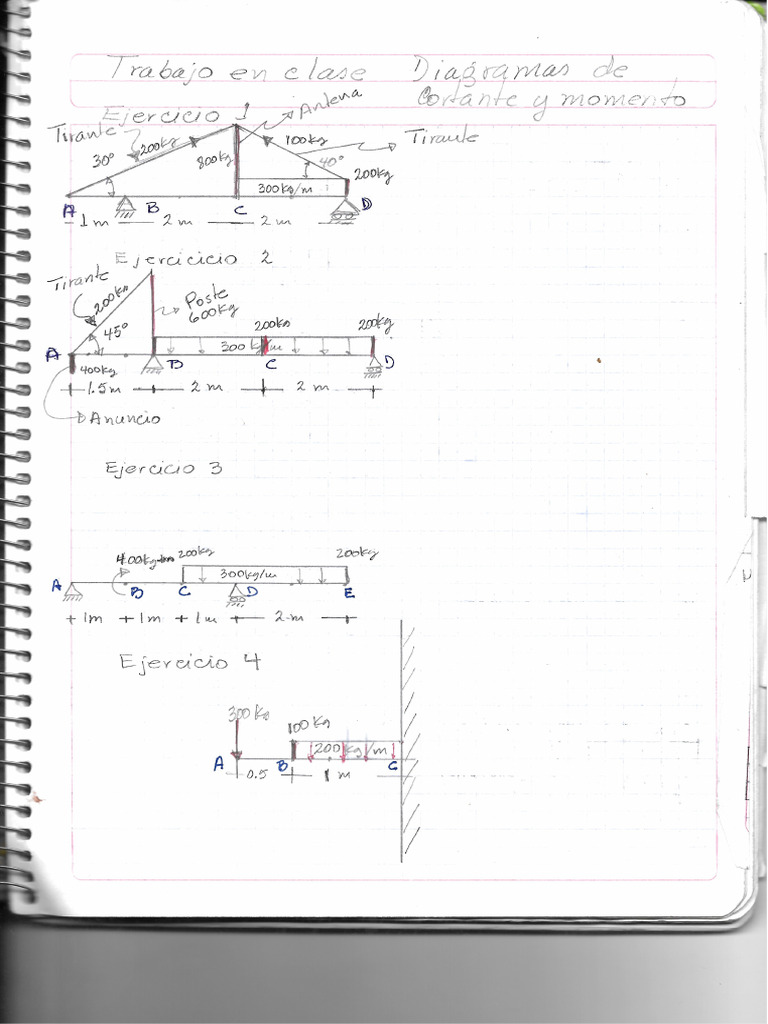 Trabajo en clase Diagramas de
Cortante y momento
Ejercicio 1
Antena
Tirante
200kg
100kg
Tirante
30°
800kg
40°
200kg
300kg/m
A B C D
1m 2m 2m
Ejercicicio 2
Tirante
200kg
Poste
600kg
45°
200kg
200kg
A
300kg/m
400kg
B C D
1.5m 2m 2m
Anuncio
Ejercicio 3
400kg-m 200kg 200kg
300kg/m
A B C D E
1m 1m 1m 2m
Ejercicio 4
300kg
100kg
200kg/m
A B C
0.5 1 m